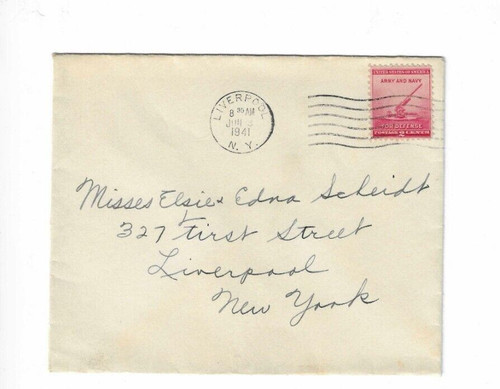 LIVERPOOL
8 30 AM
1941
N. Y.
UNITED STATES OF AMERICA
ARMY AND NAVY
FOR DEFENSE
POSTAGE 2 CENTS
Misses Elsie & Edna Scheidt
327 First Street
Liverpool
New York